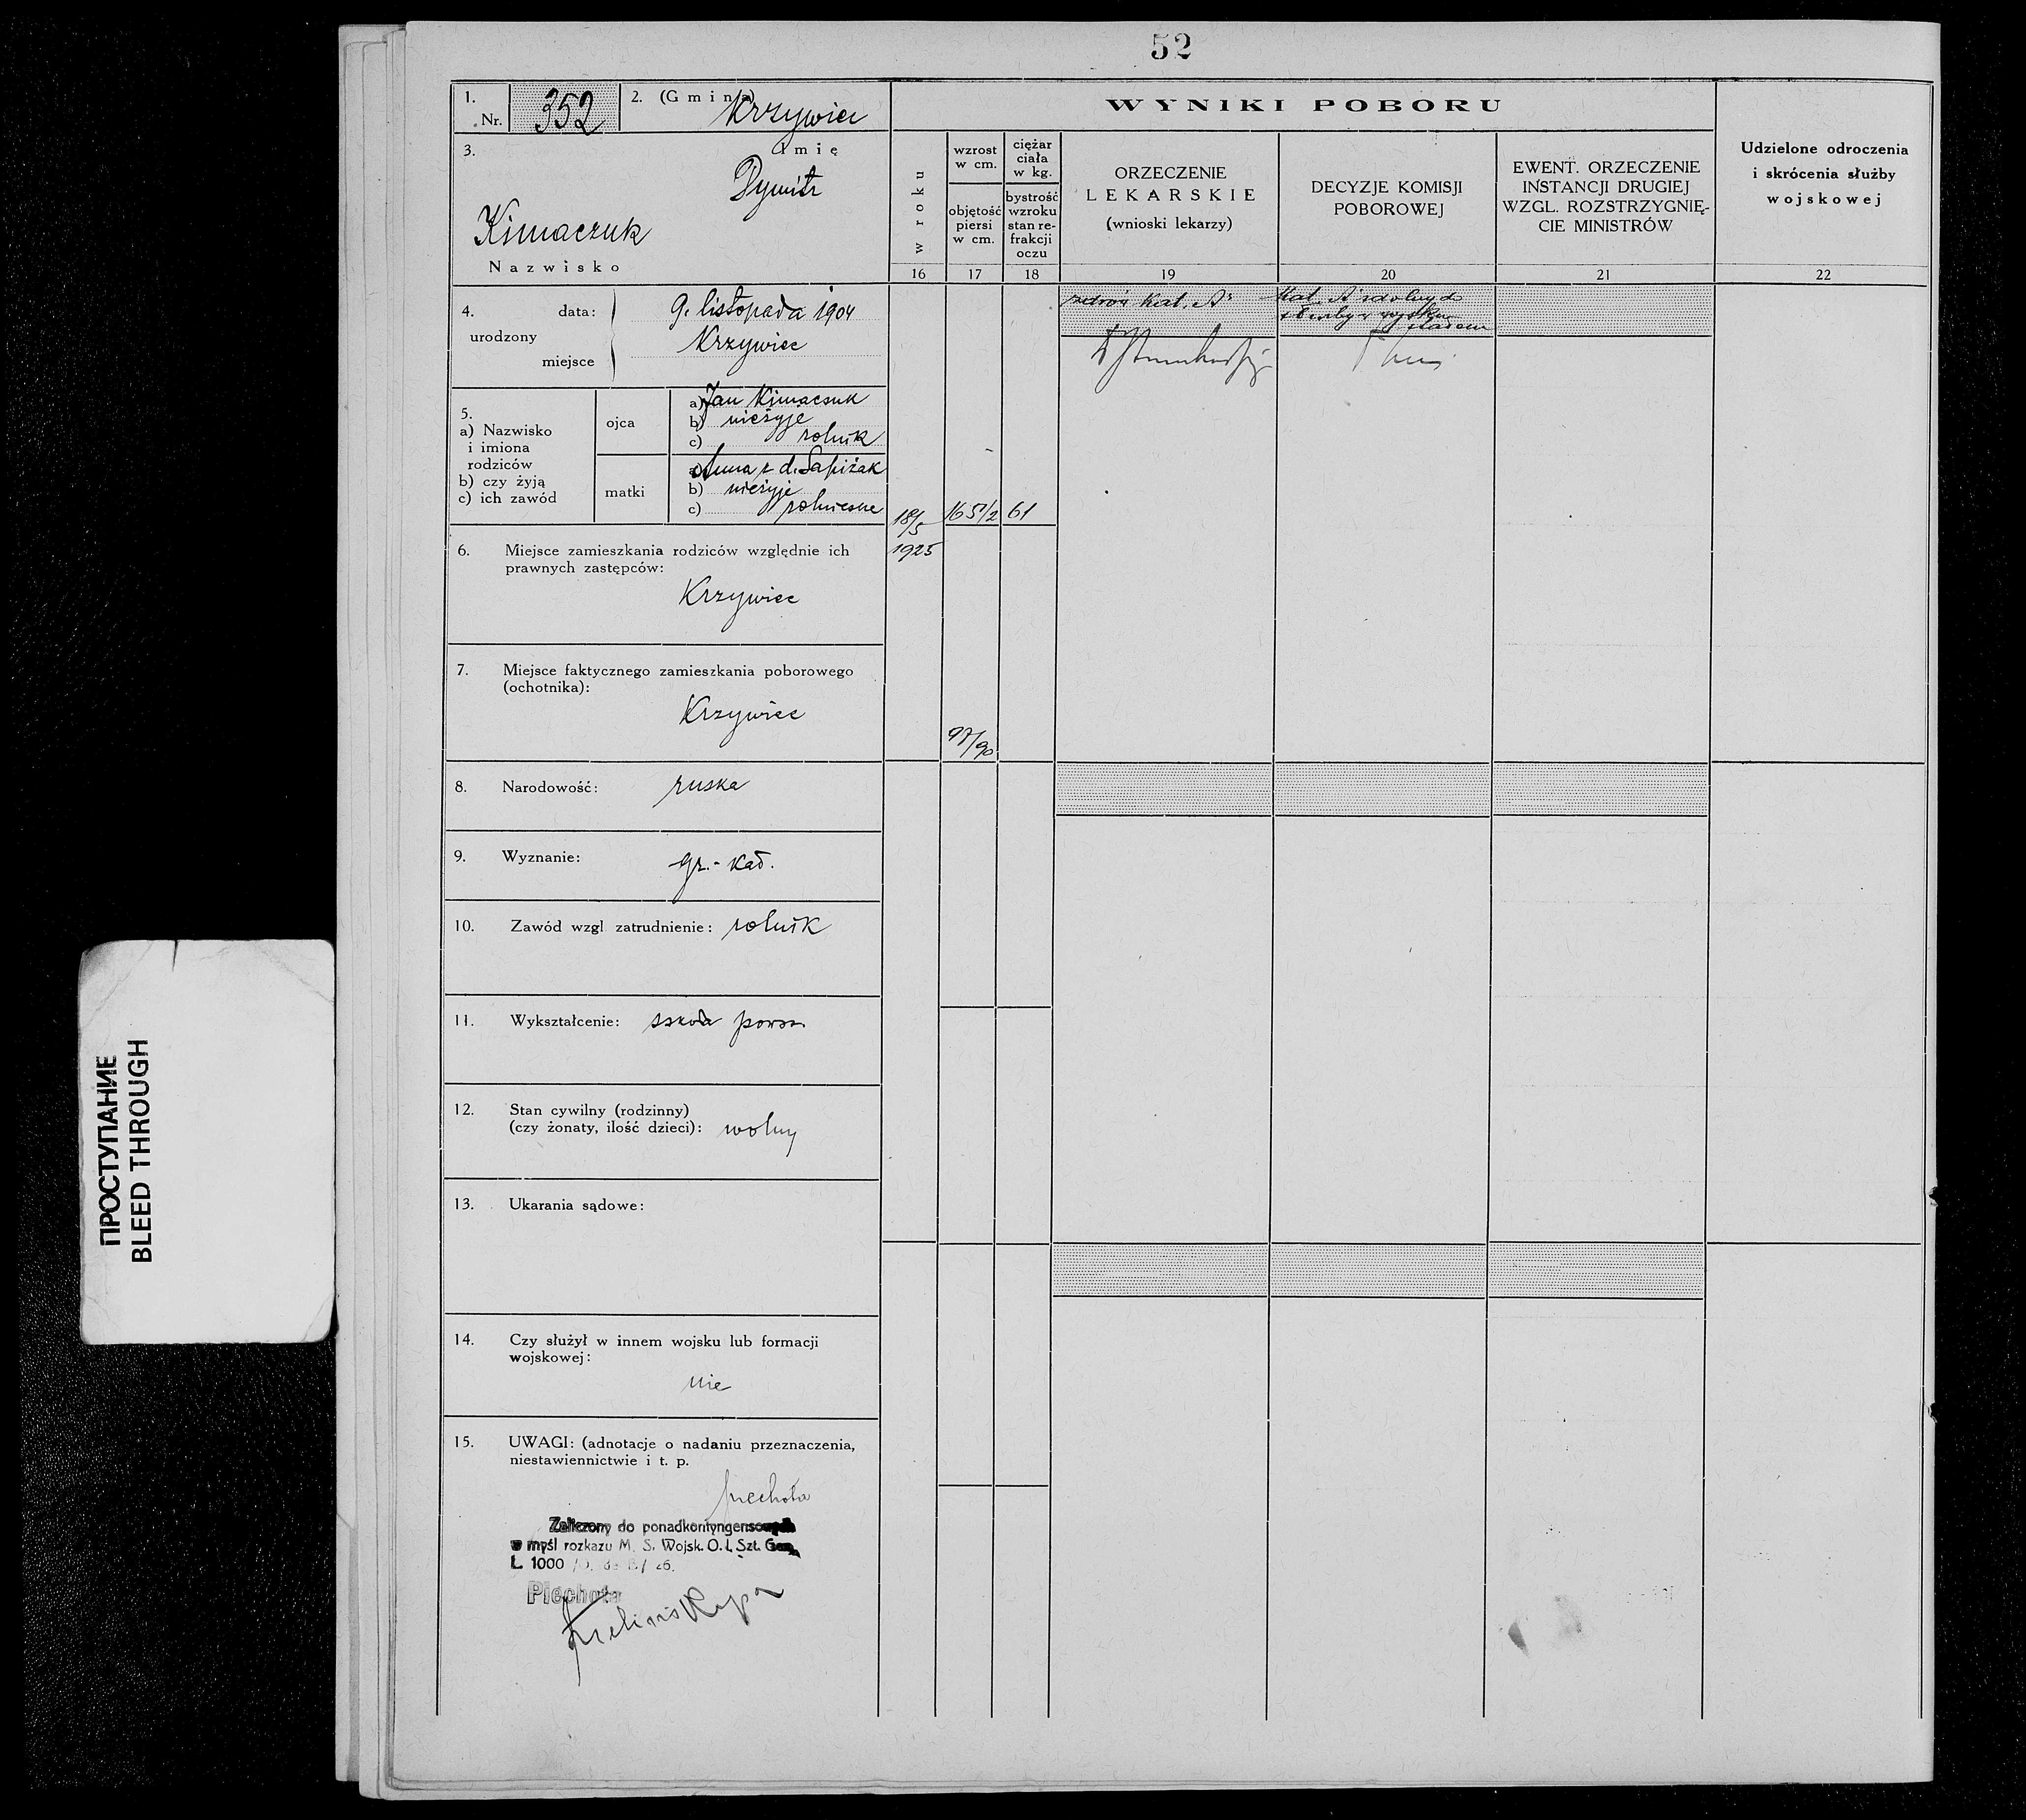 52
1.
Nr. 352
2. (Gmina) Krzywiec
3.
Imię
Dymitr
Kimaczuk
Nazwisko
4.
urodzony
data: 9. listopada 1904
miejsce Krzywiec
5.
a) Nazwisko
i imiona
rodziców
b) czy żyją
c) ich zawód
ojca
a) Jan Kimaczuk
b) nieżyje
c) rolnik
matki
a) Anna z d. Sapiżak
b) nieżyje
c)
6. Miejsce zamieszkania rodziców względnie ich
prawnych zastępców:
Krzywiec
7. Miejsce faktycznego zamieszkania poborowego
(ochotnika):
Krzywiec
8. Narodowość: ruska
9. Wyznanie: gr.-kat.
10. Zawód wzgl. zatrudnienie: rolnik
11. Wykształcenie: szkoła powsz.
12. Stan cywilny (rodzinny)
(czy żonaty, ilość dzieci): wolny
13. Ukarania sądowe:
14. Czy służył w innem wojsku lub formacji
wojskowej:
nie
15. UWAGI: (adnotacje o nadaniu przeznaczenia,
niestawiennictwie i t. p.
piechota
Zaliczony do ponadkontyngensowych
w myśl rozkazu M. S. Wojsk. O. I. Szt. Gen.
L. 1000
Piechota
WYNIKI POBORU
w roku
wzrost
w cm.
objętość
piersi
w cm.
ciężar
ciała
w kg.
bystrość
wzroku
stan re-
frakcji
oczu
ORZECZENIE
LEKARSKIE
(wnioski lekarzy)
DECYZJE KOMISJI
POBOROWEJ
EWENT. ORZECZENIE
INSTANCJI DRUGIEJ
WZGL. ROZSTRZYGNIĘ-
CIE MINISTRÓW
Udzielone odroczenia
i skrócenia służby
wojskowej
16 17 18 19 20 21 22
18/5
1925
165 1/2
61
97/90
zdrów Kat. A
Kat. A zdolny do
ПРОСТУПАНИЕ
BLEED THROUGH